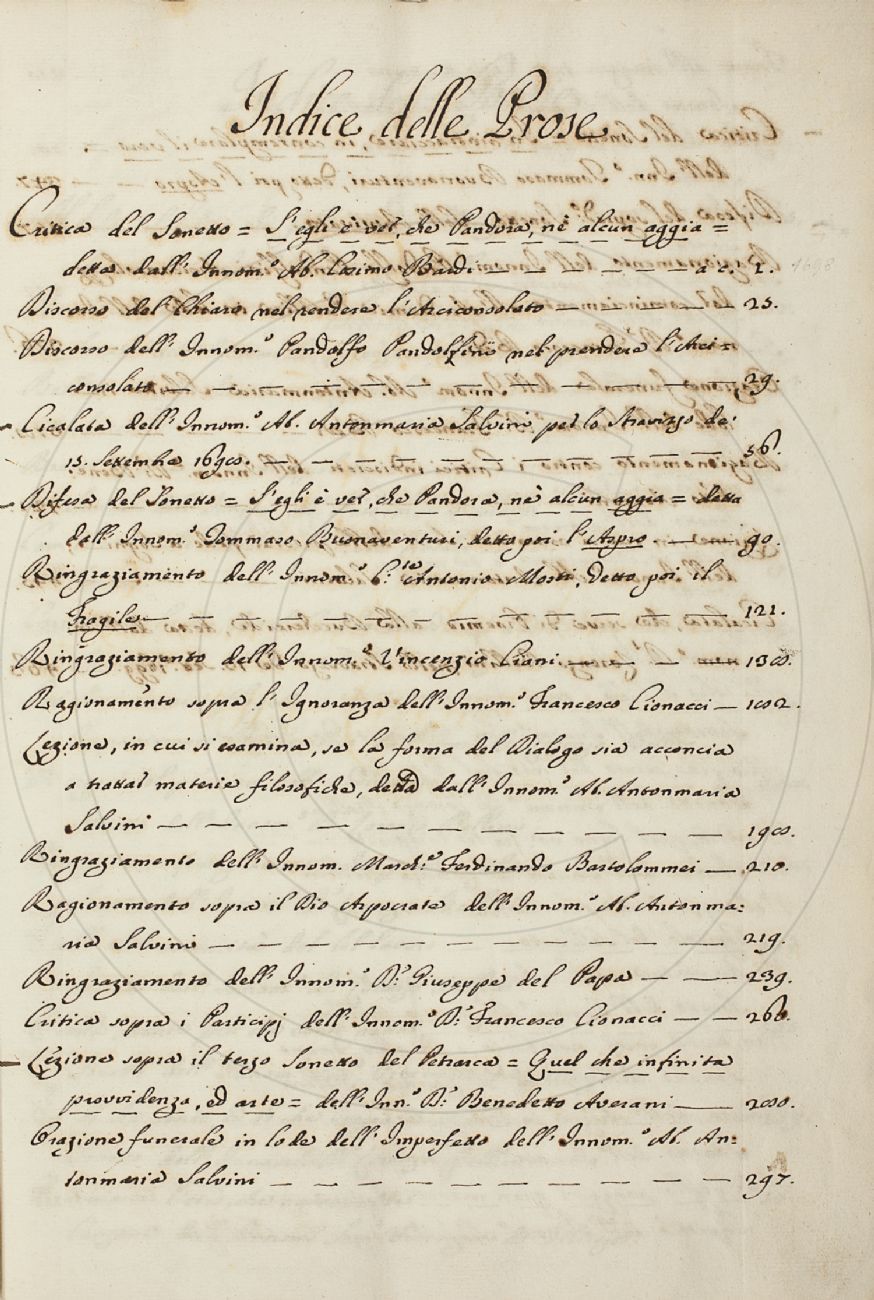 Indice delle Prose
Critica del Sonetto = S'egli è ver, che Pandora, nè alcun aggia =
detta dall' Innom.º Ab. Cosimo Bardi — — — — — a c. 1.
Discorso del Chiaro nel rendere l'Arciconsolato — — — 25.
Discorso dell' Innom.º Pandolfo Pandolfini nel prendere l'Arci=
consolato — — — — — — — — — — 29.
Cicalata dell' Innom.º Ab. Antonmaria Salvini per lo Stravizzo de'
15. Settembre — — — — — — — — 56.
Difesa del Sonetto = S'egli è ver, che Pandora, nè alcun aggia = detta
dall' Innom.º Tommaso Buonaventuri, detto poi l'Aspro — — 90.
Ringraziamento dell' Innom.º Antonio Morsi, detto poi il
Fragile — — — — — — — — — — 121.
Ringraziamento dell' Innom.º Vincenzio Ciani — — — —
Ragionamento sopra l'Ignoranza dell' Innom.º Francesco Cionacci —
Lezione, in cui si esamina, se la forma del Dialogo sia acconcia
a trattar materie filosofiche, detta dall' Innom.º Ab. Antonmaria
Salvini — — — — — — — — — —
Ringraziamento dell' Innom. March.e Ferdinando Bartolommei — 210.
Ragionamento sopra il Dio Arpocrate dell' Innom.º Ab. Antonma=
ria Salvini — — — — — — — — — 219.
Ringraziamento dell' Innom.º D.r Giuseppe del Papa — — 239.
Critica sopra i Participj dell' Innom.º D.r Francesco Cionacci — — 260.
Lezione sopra il terzo Sonetto del Petrarca = Quel che infinita
provvidenza, ed arte = dell' Inn.º D.r Benedetto Averani — 280.
Orazione funerale in lode dell' Imperfetto dell' Innom.º Ab. An=
tonmaria Salvini — — — — — — — — 297.